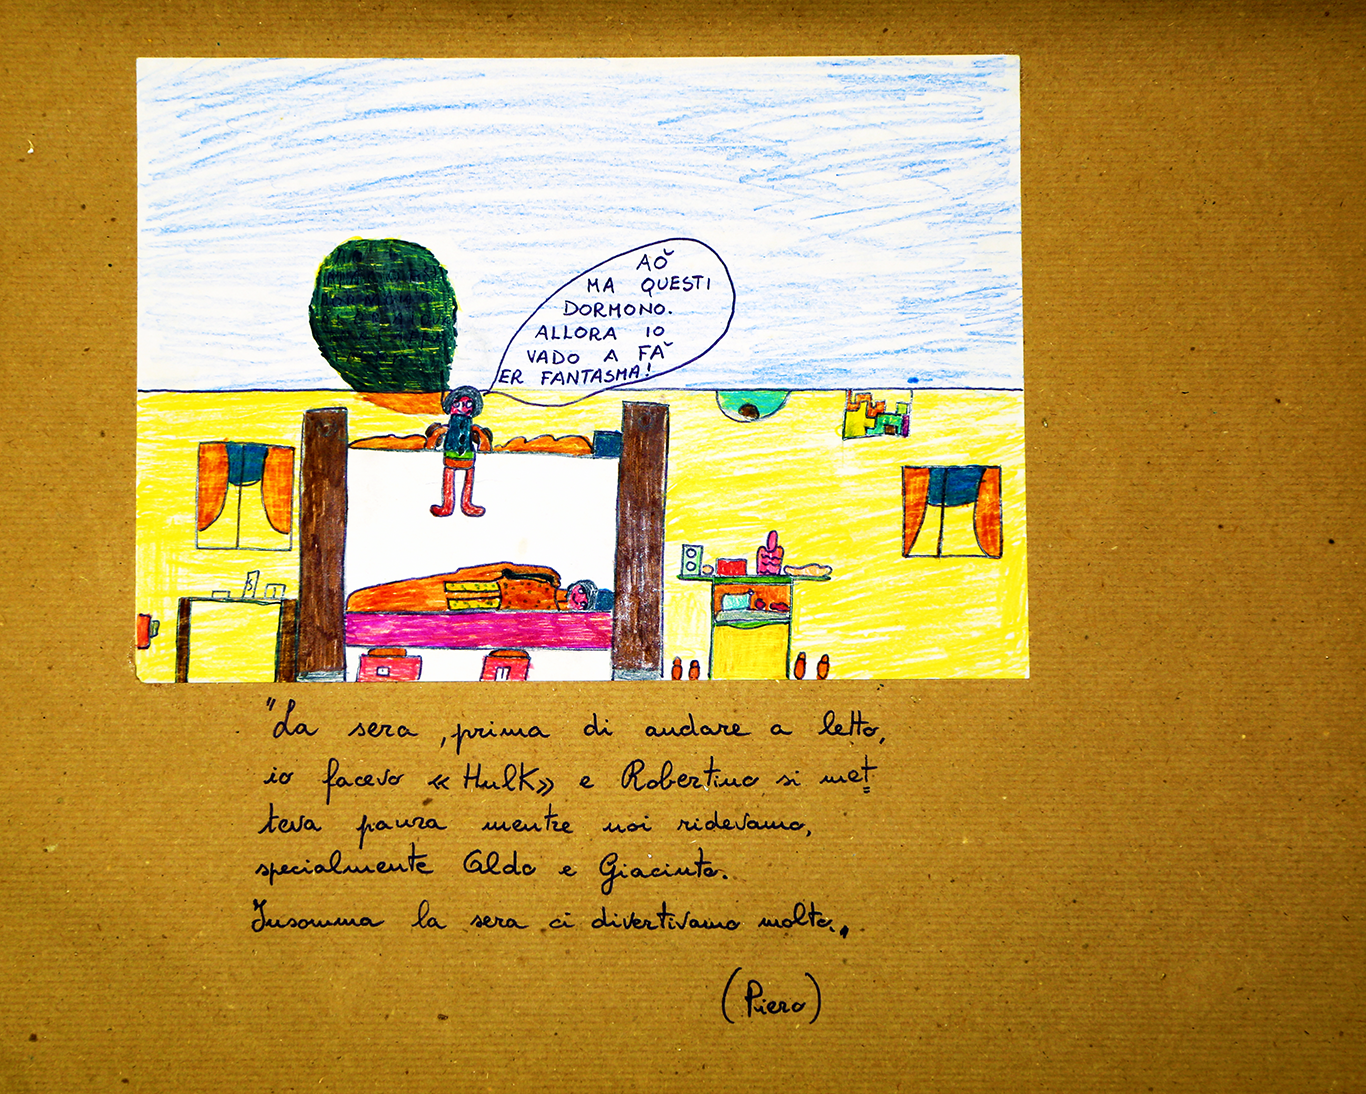 AÒ
MA QUESTI
DORMONO.
ALLORA IO
VADO A FÀ
ER FANTASMA!
"La sera, prima di andare a letto,
io facevo «Hulk» e Robertino si met=
teva paura mentre noi ridevamo,
specialmente Aldo e Giacinto.
Insomma la sera ci divertivamo molto."
(Piero)